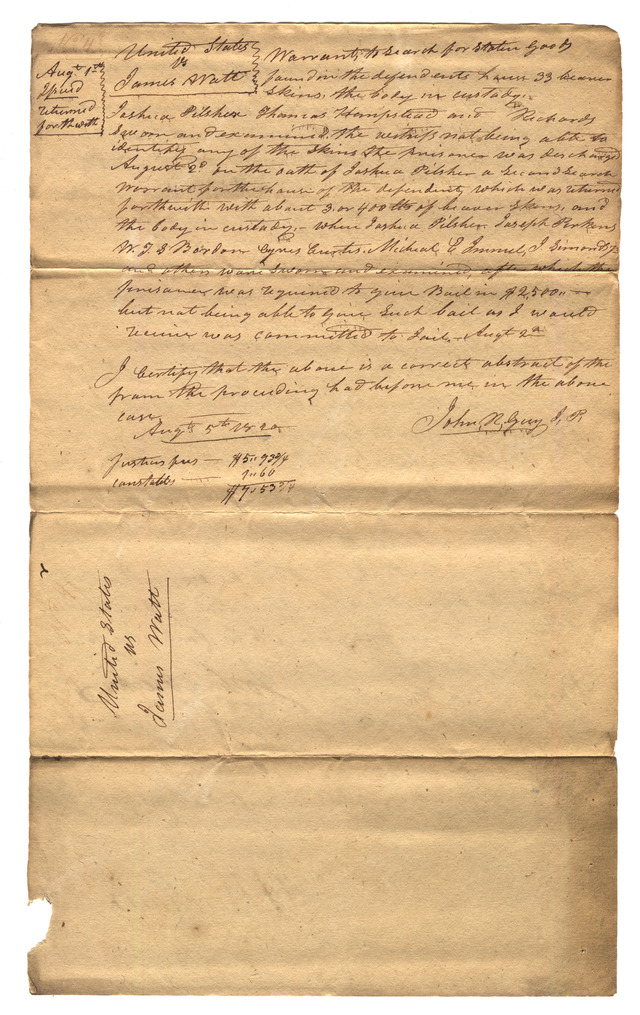 Augt 1st
Issued
returned
forthwith
United States
vs
James Watt
Warrant to Search for Stolen Goods
found in the defendents house 33 beaver
Skins, the body in custody.
Joshua Pilsher Thomas Hempstead and Richards
Sworn and examined. the witness not being able to
identify any of the Skins the prisoner was discharged
August 2d on the oath of Joshua Pilsher a Second Search
Warrant for the house of the defendent, which was returned
forthwith with about 3. or 400 lbs of beaver Skins, and
the body in custody, - when Joshua Pilsher, Joseph Perkins
W. J. S Bordon Cyrus Curtis, Micheal E Immel, J. Simonds Jr
and others ware Sworn and examined, after which the
prisoner was required to give Bail in $2,500..
but not being able to give Such bail as I would
receive was committed to Jail Augt 2d
I Certify that the above is a correct abstract of the
from the proceeding had before me in the above
case
Augt 5th 1820
John R. Guy J. P.
Justices fees — $5..93 3/4
constables — 1..60
$7..53 3/4
United States
vs
James Watt